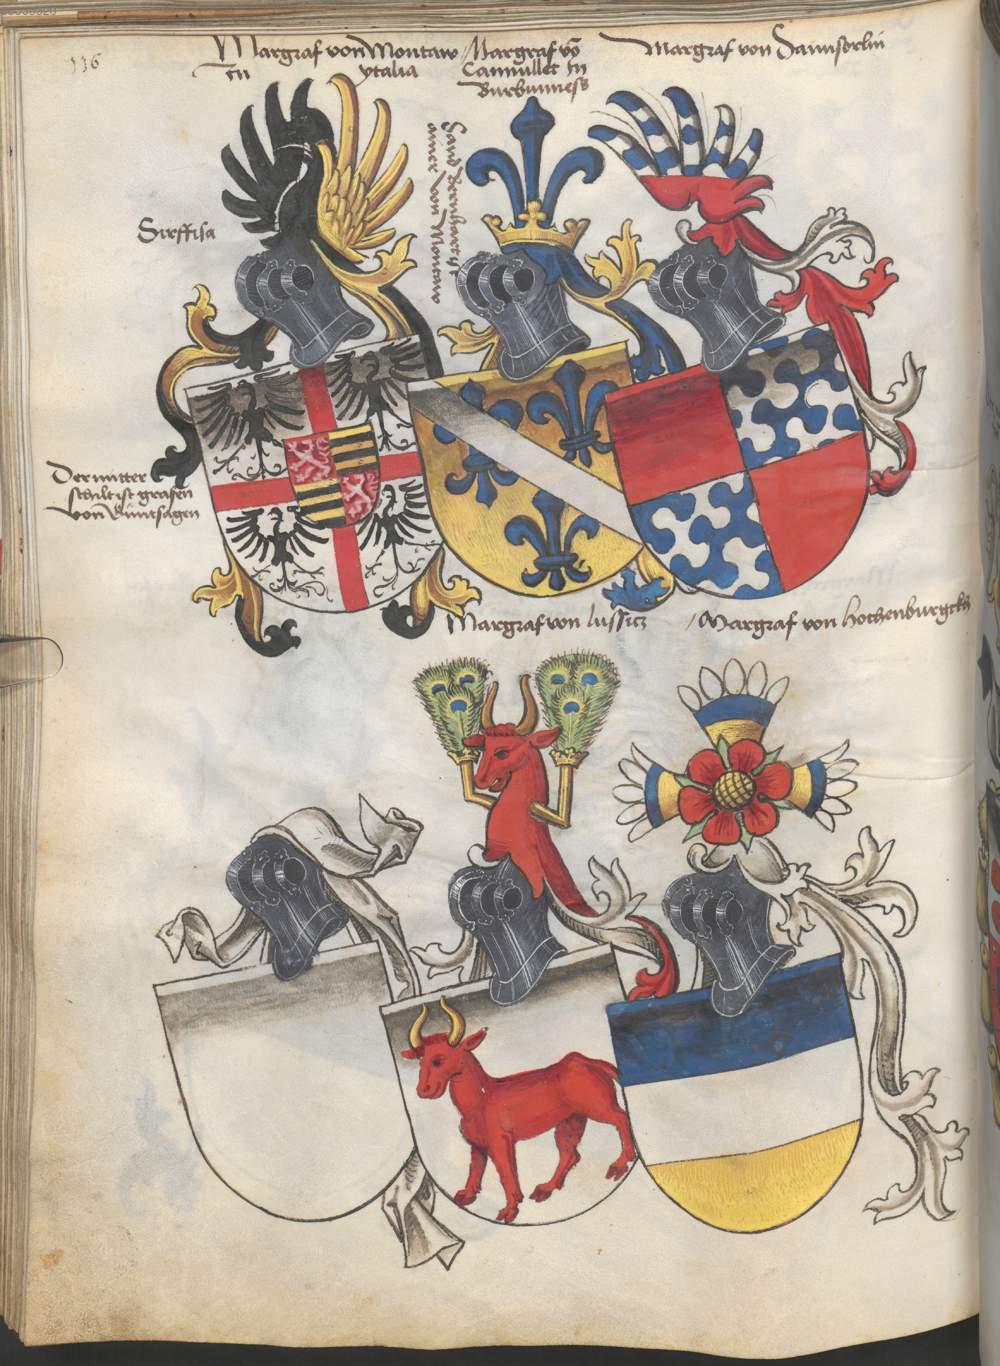 116
Margraf von Montaw
In ytalia
Margraf vō
Camüllet In
Burbunness
Margraf von
Sirffisa
Sand Bernhartz
ainer von Montaw
Der mitter
schilt ist grafen
von
Margraf von lussitz
/ Margraf von hochenburgckh